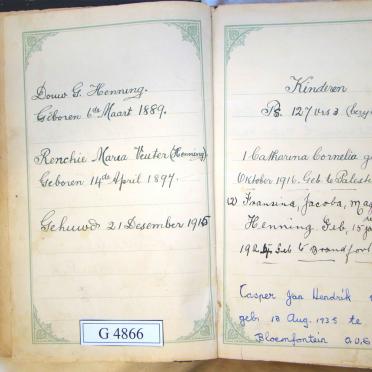 Douw G. Henning.
Geboren 6de Maart 1889.
Renchie Maria Venter (Henning)
Geboren 14de April 1897.
Gehuwd 21 Desember 1915
G 4866
Kinderen
Ps. 127 vrs 3
1 Catharina Cornelia
Oktober 1916. Geb te
(2) Fransina, Jacoba,
Henning. Geb, 15
Geb te
Casper Jan Hendrik
geb. 18 Aug. 1935 te
Bloemfontein O.V.S